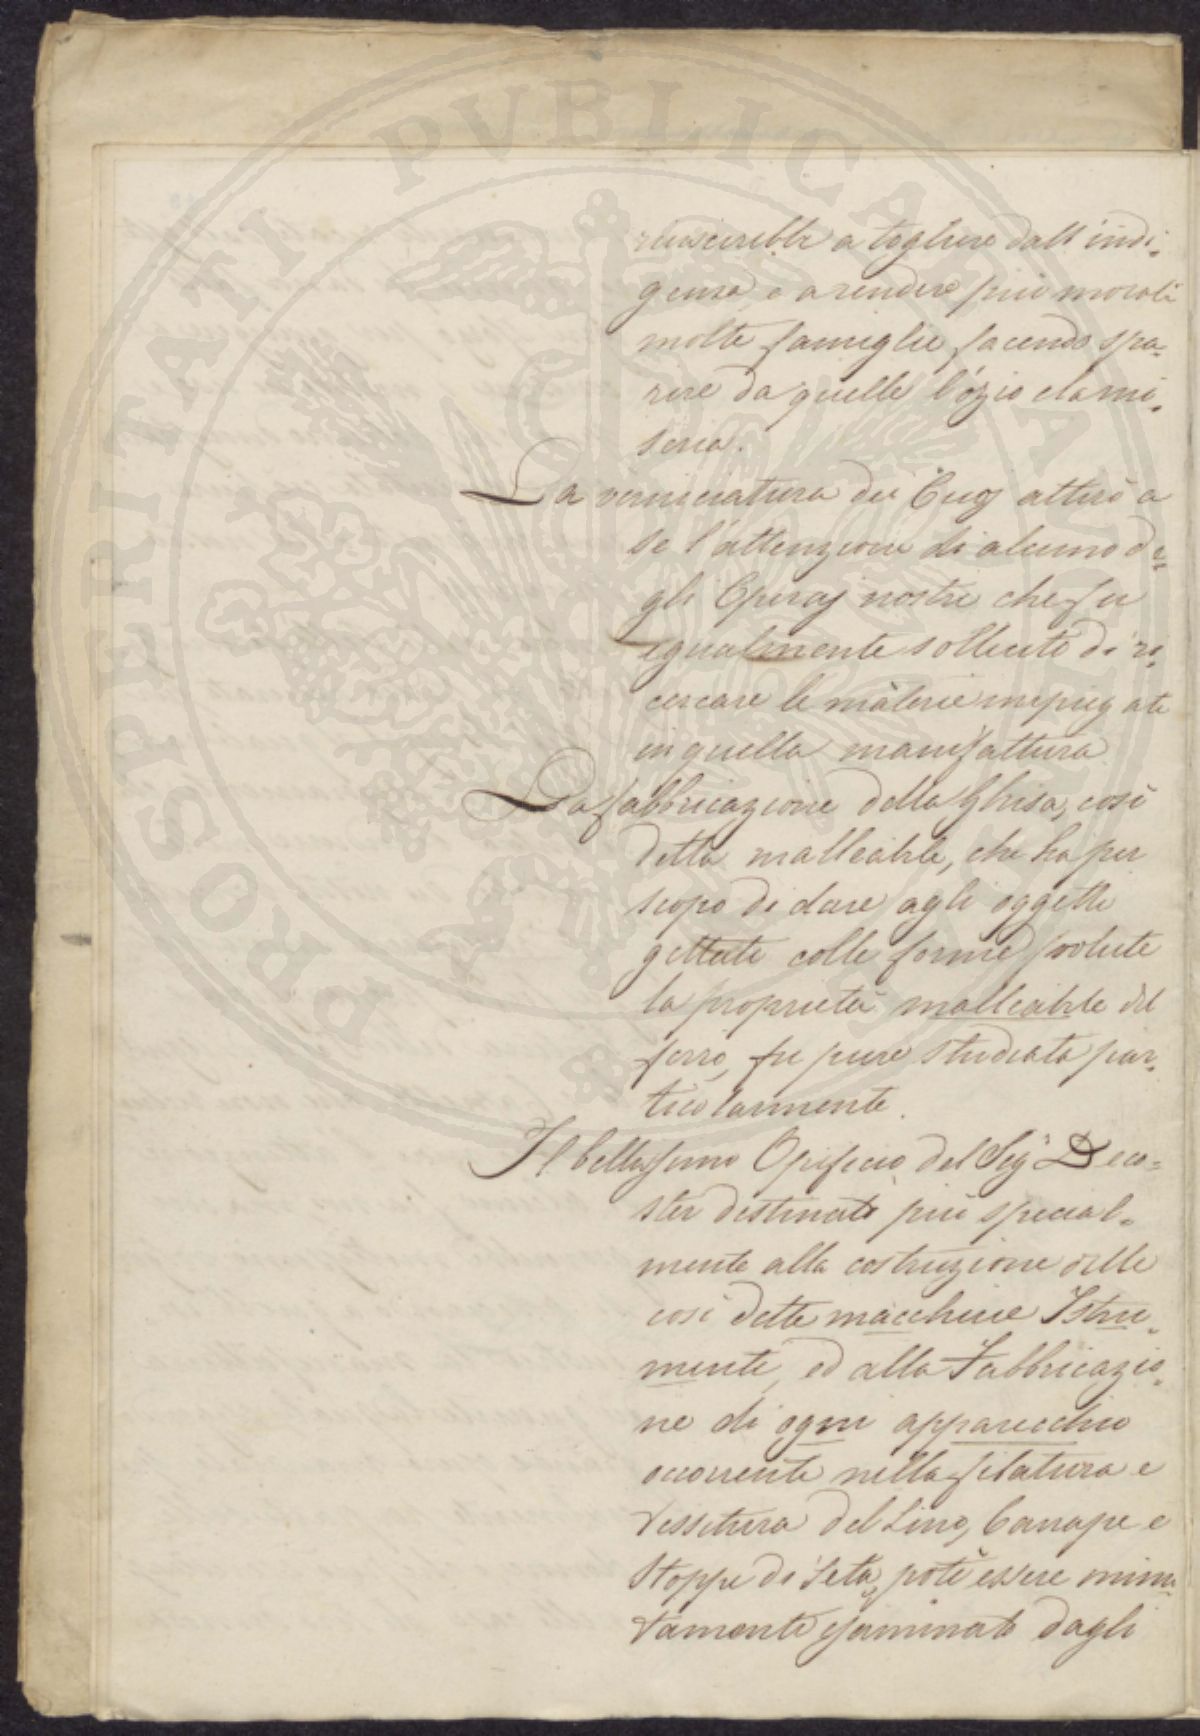 PROSPERITATI PVBLICAE AVGENDAE
riuscirebbe a togliere dall'indi-
genza, e a rendere più morali
molte famiglie facendo spa-
rire da quelle l'ozio e la mi-
seria.
La verniciatura dei Cuoj attirò a
se l'attenzione di alcuno de-
gli Operaj nostri che fu
egualmente sollecito di ri-
cercare le materie impiegate
in quella manifattura.
La fabbricazione della Ghisa, così
detta malleabile, che ha per
scopo di dare agli oggetti
gettati colle forme volute
la proprietà malleabile del
ferro, fu pure studiata par-
ticolarmente.
Il bellissimo Opificio del Sigr Deco-
ster destinato più special-
mente alla costruzione delle
così dette macchine Istru-
menti, ed alla Fabbricazio-
ne di ogni apparecchio
occorrente nella filatura e
tessitura del Lino, Canape e
Stoppe di Seta, potè essere minu-
tamente esaminato dagli